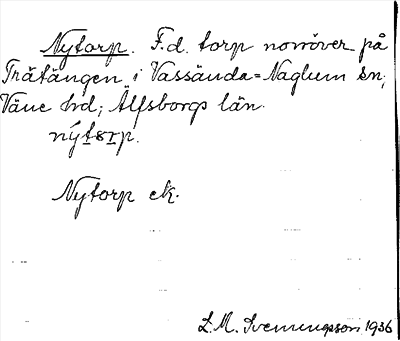 Nytorp. F.d. torp norröver på
Trätängen i Vassända=Naglum sn,
Väne hrd; Älfsborgs län.
nýtorp.
Nytorp ek.
L.M. Svenungsson 1936